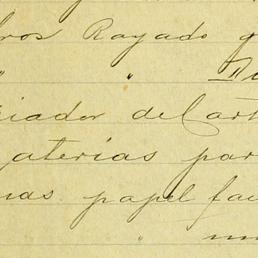 ros Rayado
" "
iador de Cart
aterias par
nas papel fac